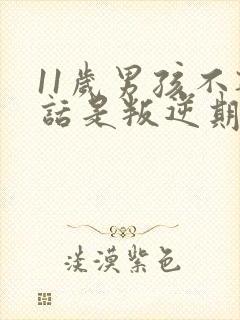 11岁男孩不
话是叛逆期
淡漠紫色